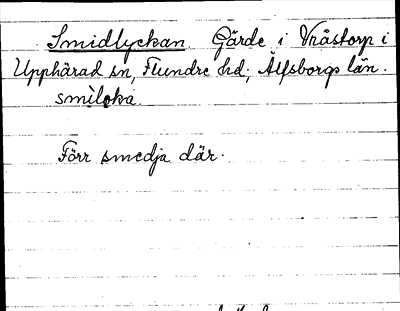 Smidlyckan. Gärde i Vråstorp i
Upphärad sn, Flundre hd, Älfsborgs län.
smìloka.
Förr smedja där.